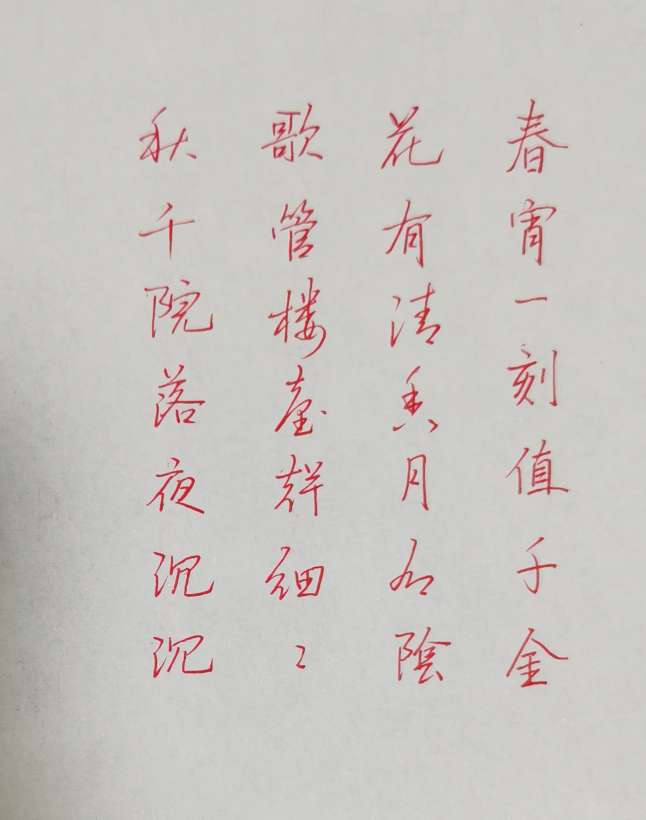 春宵一刻值千金
花有清香月有陰
歌管楼臺聲細〻
秋千院落夜沉沉